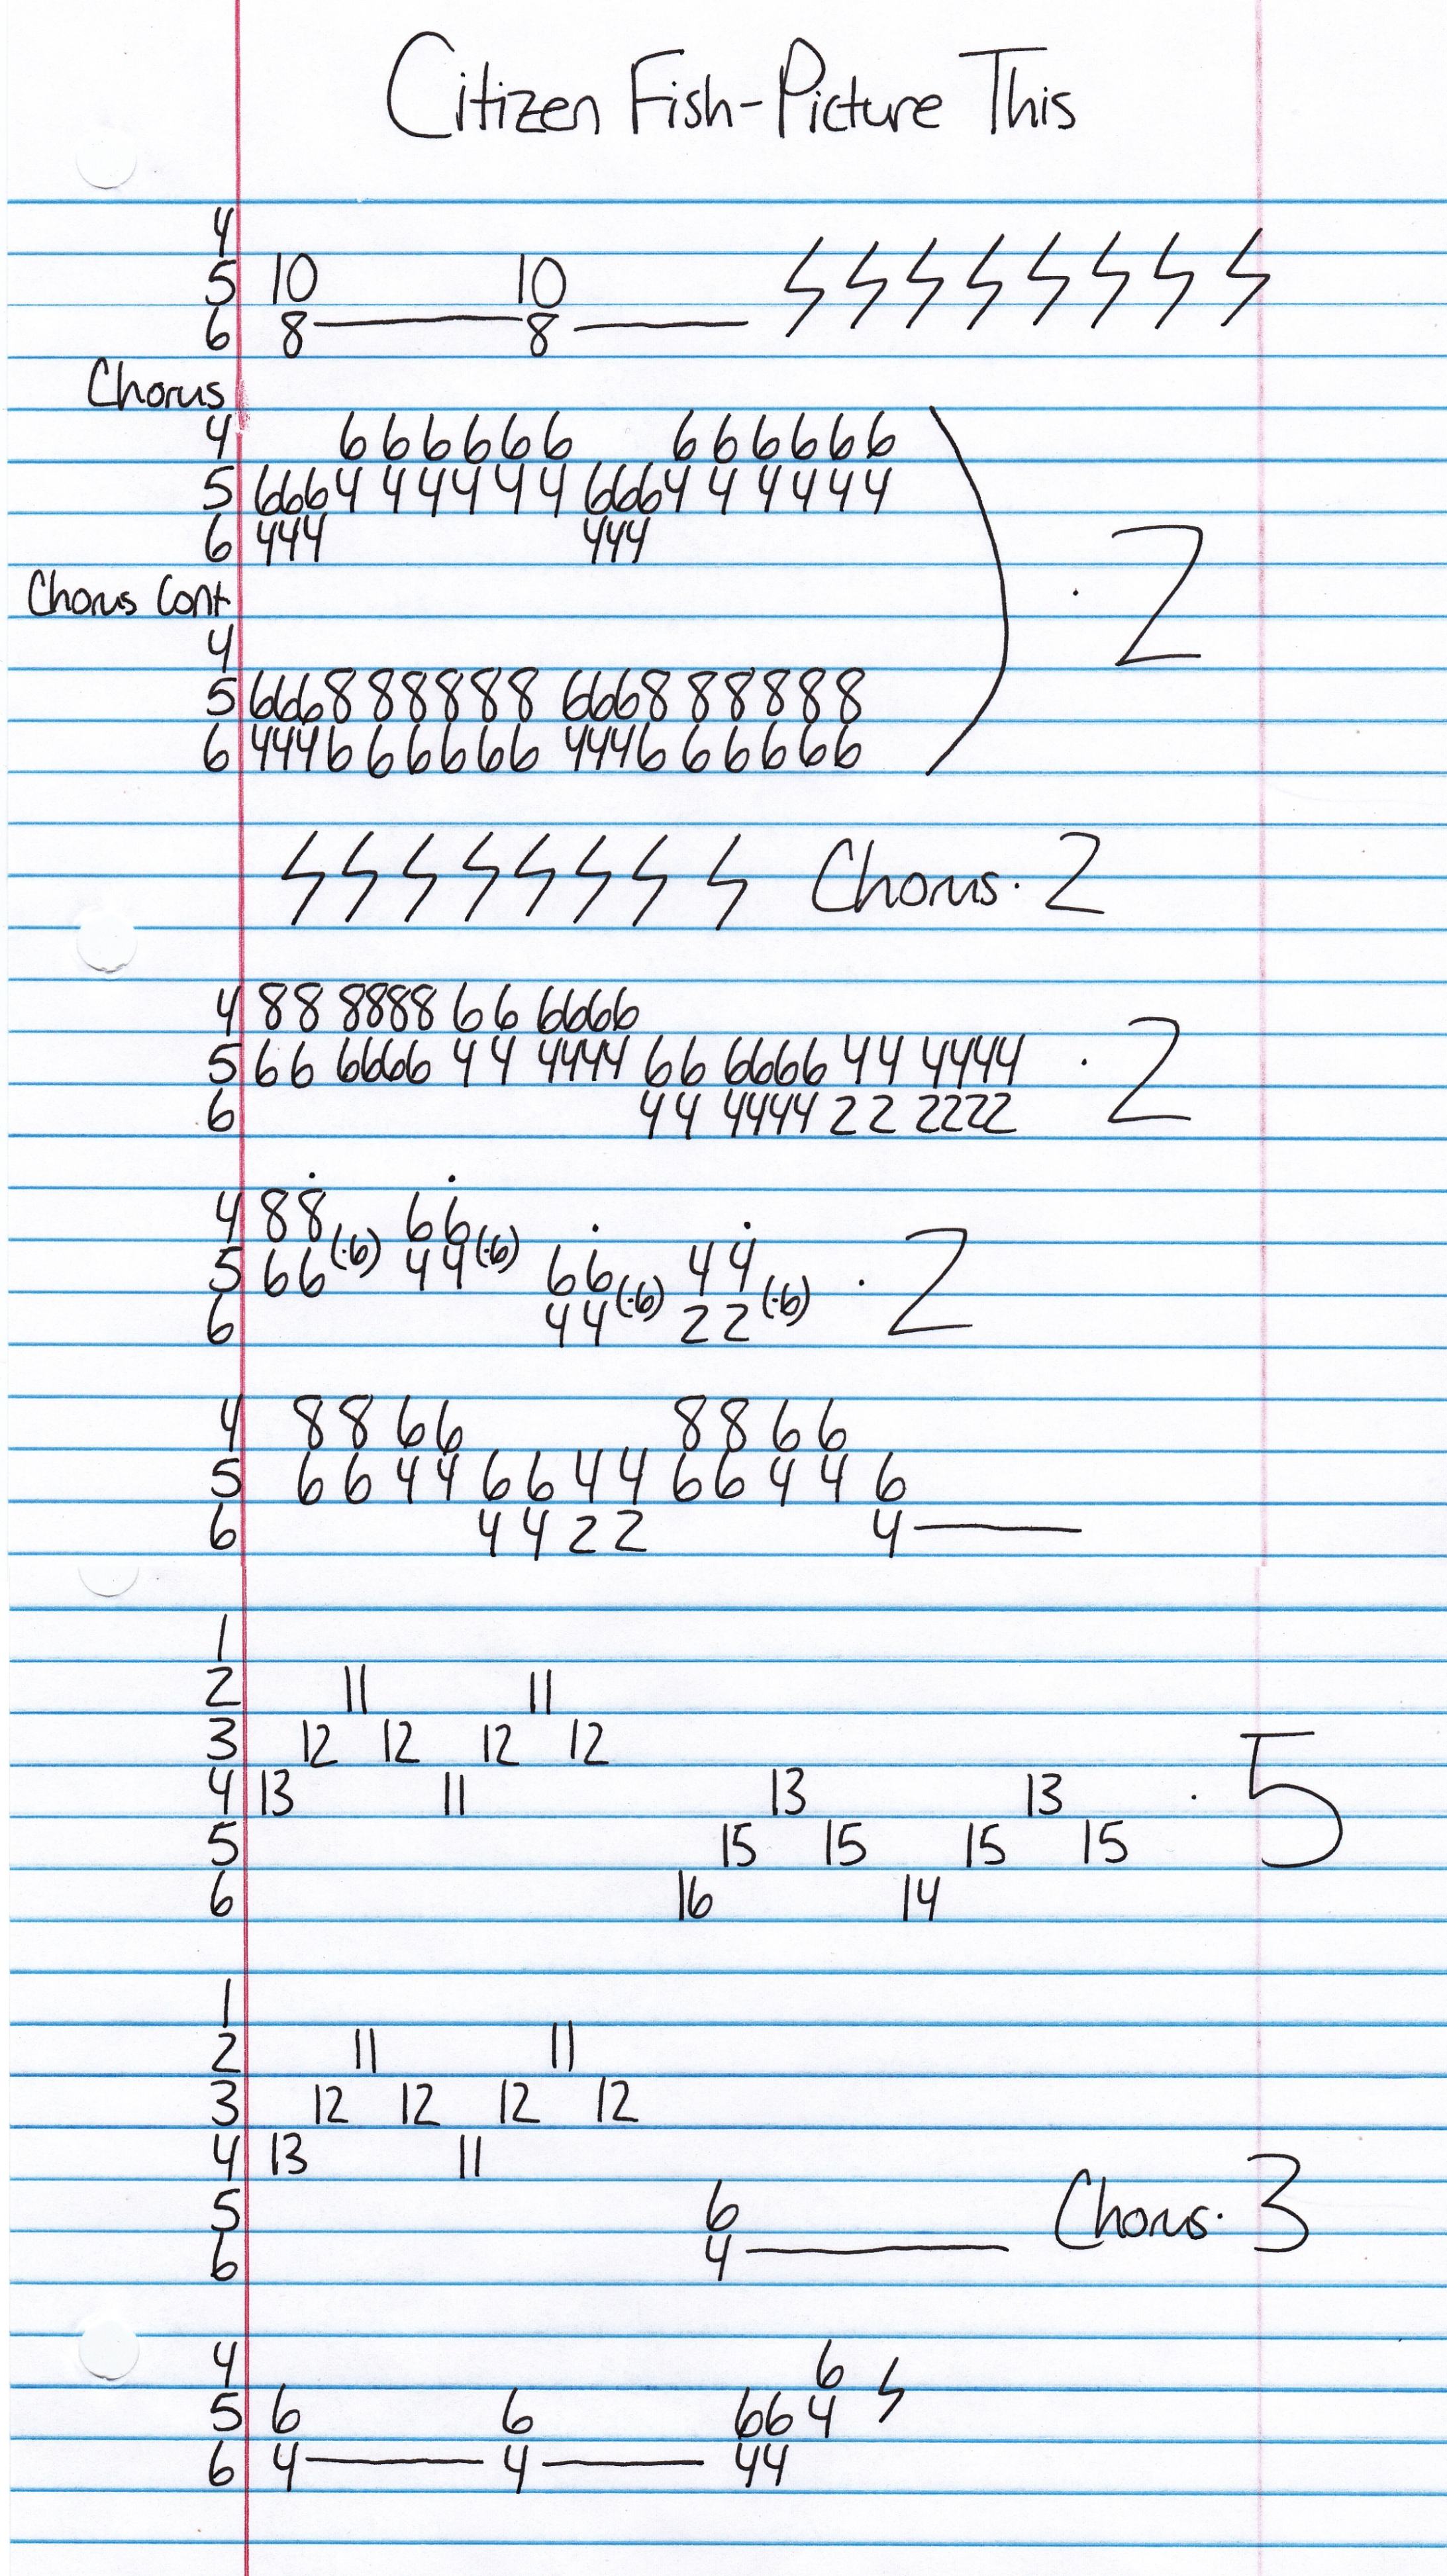 Citizen Fish-Picture This
4
5 10 10
6 8 8
Chorus
4 6 6 6 6 6 6 6 6 6 6 6 6
5 666 4 4 4 4 4 4 666 4 4 4 4 4 4
6 444 444
· 2
Chorus Cont
4
5 6668 8 8 8 8 8 6668 8 8 8 8 8
6 4446 6 6 6 6 6 4446 6 6 6 6 6
Chorus · 2
4 88 8888 66 6666
5 66 6666 44 4444 66 6666 44 4444 · 2
6 44 4444 22 2222
4 88 66
5 66 (·6) 44 (·6) 66 44 · 2
6 44 (·6) 22 (·6)
4 8 8 6 6 8 8 6 6
5 6 6 4 4 6 6 4 4 6 6 4 4 6
6 4 4 2 2 4
1
2 11 11
3 12 12 12 12
4 13 11 13 13 · 5
5 15 15 15 15
6 16 14
1
2 11 11
3 12 12 12 12
4 13 11
5 6
6 4 Chorus · 3
4 6
5 6 6 66 4
6 4 4 44